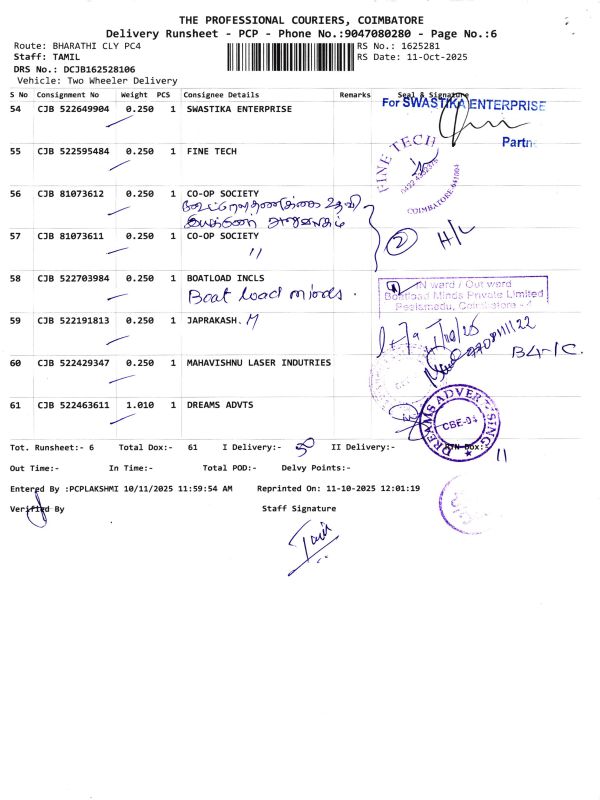 THE PROFESSIONAL COURIERS, COIMBATORE
Delivery Runsheet - PCP - Phone No.:9047080280 - Page No.:6
Route: BHARATHI CLY PC4 RS No.: 1625281
Staff: TAMIL RS Date: 11-Oct-2025
DRS No.: DCJB162528106
Vehicle: Two Wheeler Delivery
S No Consignment No Weight PCS Consignee Details Remarks Seal & Signature
54 CJB 522649904 0.250 1 SWASTIKA ENTERPRISE
For SWASTIKA ENTERPRISE
Partn
55 CJB 522595484 0.250 1 FINE TECH
FINE TECH
COIMBATORE-641004
56 CJB 81073612 0.250 1 CO-OP SOCIETY
57 CJB 81073611 0.250 1 CO-OP SOCIETY
"
2 H/L
58 CJB 522703984 0.250 1 BOATLOAD INCLS
Boat load minds.
IN ward / Out ward
Boatload Minds Private Limited
Peelamedu, Coimbatore - 4
59 CJB 522191813 0.250 1 JAPRAKASH. M
60 CJB 522429347 0.250 1 MAHAVISHNU LASER INDUTRIES
61 CJB 522463611 1.010 1 DREAMS ADVTS
DREAMS ADVERTISING
CBE-04
Tot. Runsheet:- 6 Total Dox:- 61 I Delivery:- II Delivery:- RTN Dox:-
11
Out Time:- In Time:- Total POD:- Delvy Points:-
Entered By :PCPLAKSHMI 10/11/2025 11:59:54 AM Reprinted On: 11-10-2025 12:01:19
Verified By Staff Signature